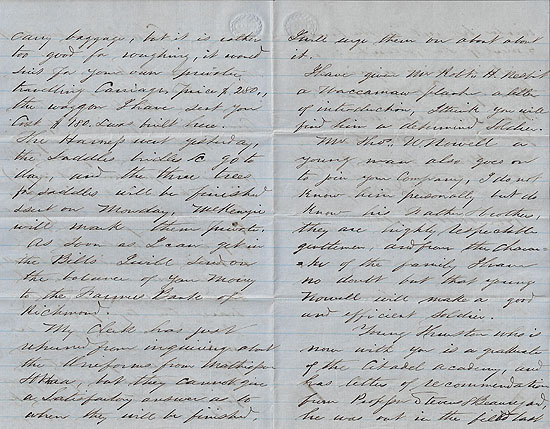 carry baggage, but it is rather
too good for roughing, it would
suit for your own private
travelling Carriage, price $280.,
the waggon I have sent you
Cost $180. & was built here.
The Harness went yesterday,
the Saddles bridles &c go to
day, and the three
for saddles will be finished
sent on Monday, McKenzie
will mark them private,
As soon as I can get in
the Bills I will send on
the balance of your Money
to the Farmers Bank of
Richmond.
My Clerk has just
returned from inquiring about
the Uniforms from
but they cannot give
a satisfactory answer as to
when they will be finished,
I will urge them on about about
it.
I have given Mr Robt. H. Nesbit
a Waccamaw planter a letter
of introduction, I think you will
find him a determined Soldier.
Mr. Thos. W Nowell a
young man also goes on
to join your Company, I do not
know him personally but do
know his Father & brother,
they are highly respectable
gentlemen, and from the Charac
-ter of the family I have
no doubt but that young
Nowell will make a good
and efficient Soldier.
Young who is
now with you is a graduate
of the Citadel Academy, and
has letter of recommendation
from Proffsr Stevens & Beauregard,
he was out in the field last